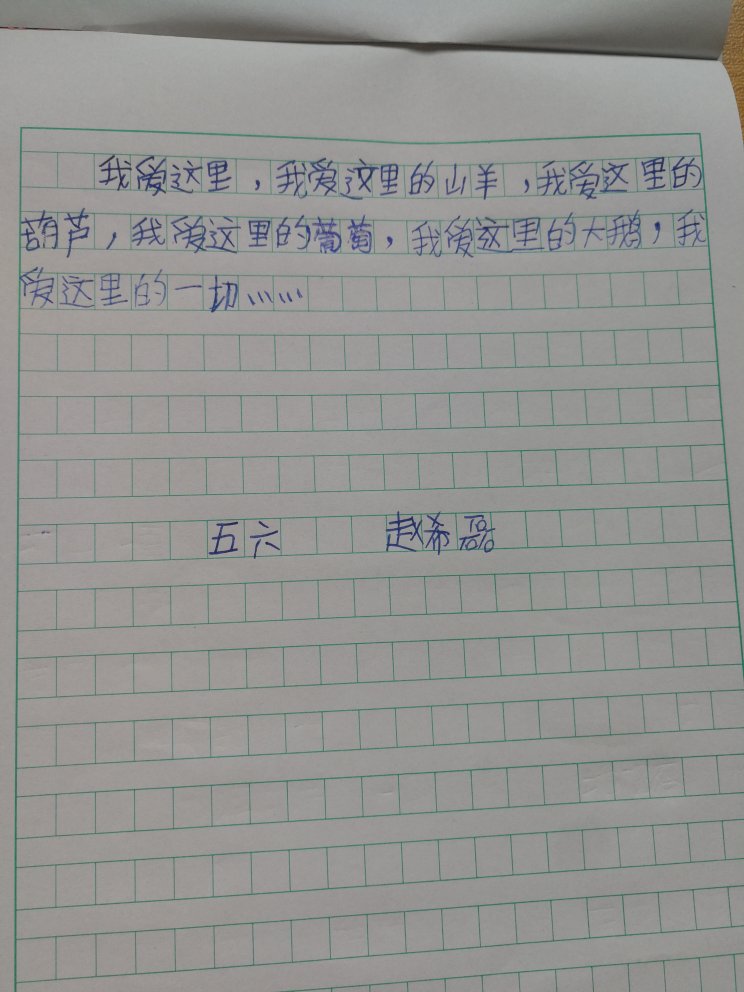 我爱这里，我爱这里的山羊，我爱这里的
葫芦，我爱这里的葡萄，我爱这里的大鹅，我
爱这里的一切……
五六 赵希磊